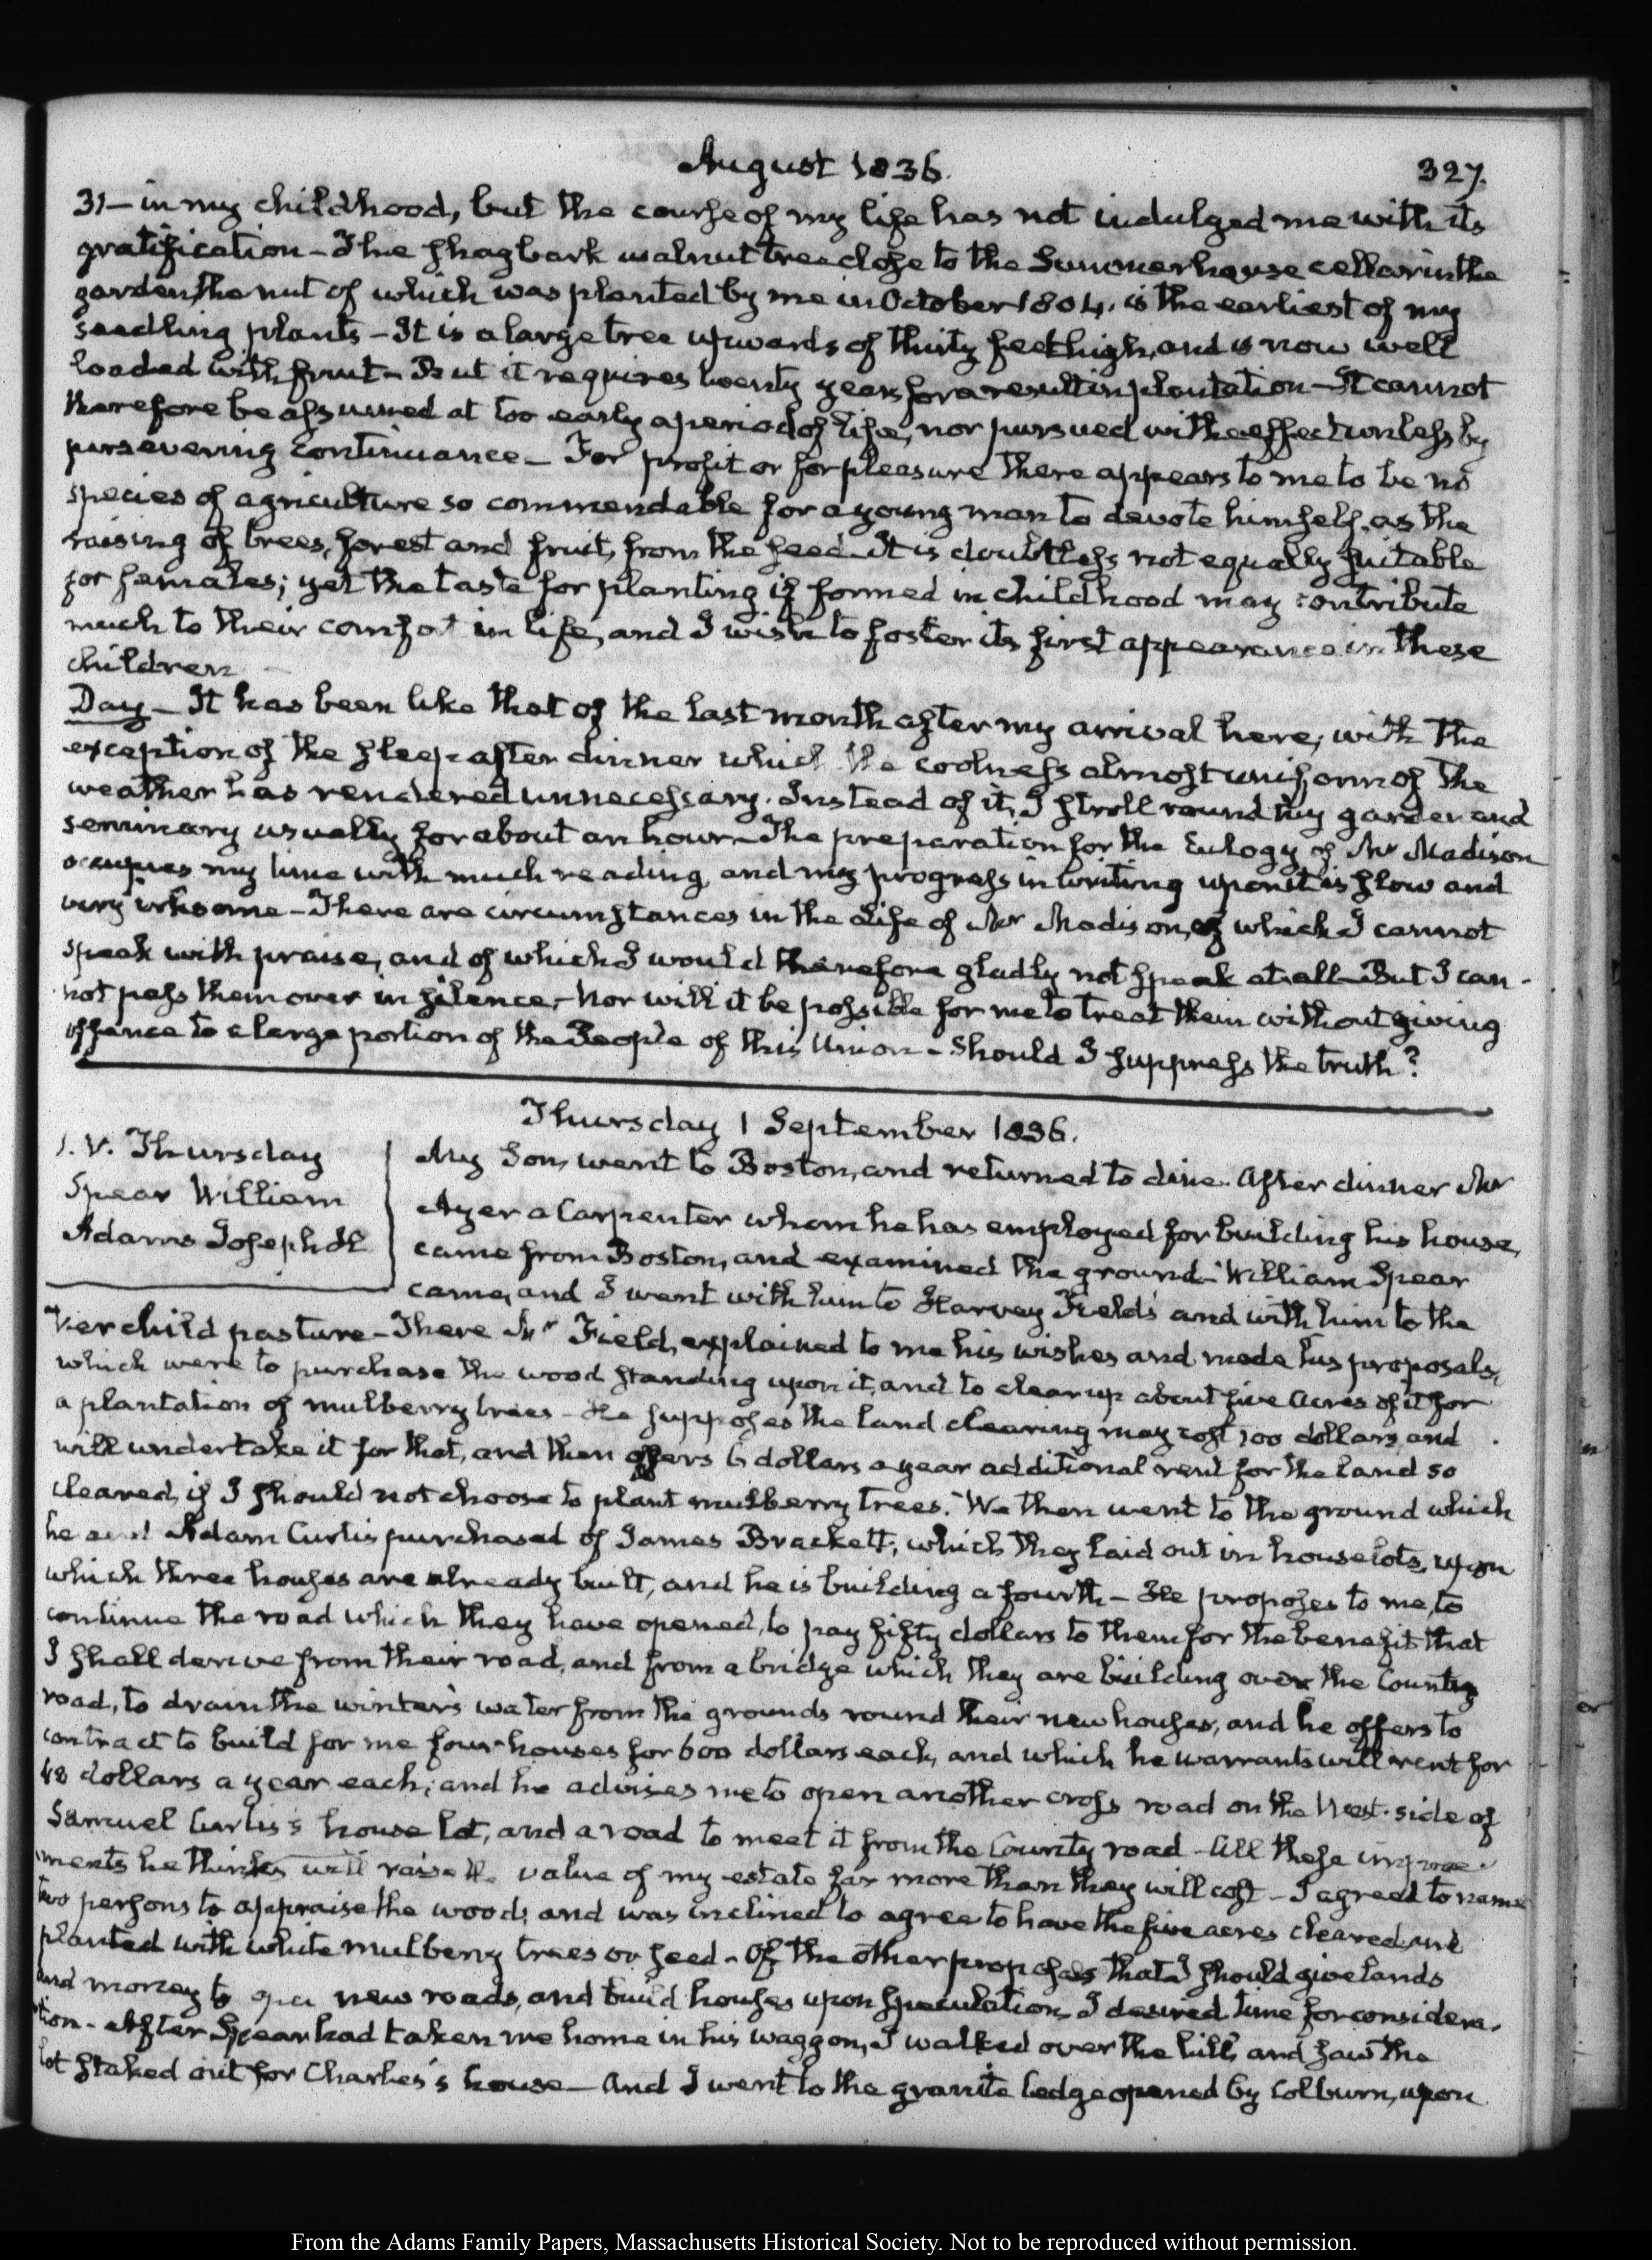 August 1836.
327.
31 — in my childhood, but the course of my life has not indulged me with its
gratification — The shagbark walnut tree close to the Summerhouse cellar in the
garden, the nut of which was planted by me in October 1804. is the earliest of my
seedling plants — It is a large tree upwards of thirty feet high, and is now well
loaded with fruit — But it requires twenty years for a result in plantation — It cannot
therefore be assumed at too early a period of life, nor pursued with effect unless by
persevering continuance — For profit or for pleasure there appears to me to be no
species of agriculture so commendable for a young man to devote himself, as the
raising of trees, forest and fruit, from the seed — It is doubtless not equally suitable
for females; yet the taste for planting if formed in childhood may contribute
much to their comfort in life, and I wish to foster its first appearance in these
children
Day — It has been like that of the last month after my arrival here, with the
exception of the sleep after dinner which the coolness almost uniform of the
weather has rendered unnecessary. Instead of it, I stroll round my garden and
seminary usually for about an hour — The preparation for the Eulogy of Mr Madison
occupies my time with much reading, and my progress in writing upon it is slow and
very irksome — There are circumstances in the Life of Mr Madison, of which I cannot
speak with praise, and of which I would therefore gladly not speak at all — But I can-
not pass them over in silence, — Nor will it be possible for me to treat them without giving
offence to a large portion of the People of this Union — Should I suppress the truth?
Thursday 1 September 1836.
1. V. Thursday
Spear William
Adams Joseph H
My Son, went to Boston, and returned to dine. After dinner Mr
Ayer a Carpenter whom he has employed for building his house,
came from Boston, and examined the ground — William Spear
came, and I went with him to Harvey Field's and with him to the
Verchild pasture — There Mr Field, explained to me his wishes and made his proposals,
which were to purchase the wood standing upon it, and to clear up about five Acres of it for
a plantation of mulberry trees — He supposes the land clearing may cost 100 dollars, and
will undertake it for that, and then offers 6 dollars a year additional rent for the land so
cleared, if I should not choose to plant mulberry trees. We then went to the ground which
he and Adam Curtis purchased of James Brackett; which they laid out in houselots, upon
which three houses are already built, and he is building a fourth — He proposes to me, to
continue the road which they have opened, to pay fifty dollars to them for the benefit that
I shall derive from their road, and from a bridge which they are building over the County
road, to drain the winter's water from the grounds round their new houses, and he offers to
contract to build for me four houses for 600 dollars each, and which he warrants will rent for
48 dollars a year each; and he advises me to open another cross road on the West side of
Samuel Curtis's house lot, and a road to meet it from the County road — All these improve-
ments he thinks will raise the value of my estate far more than they will cost — I agreed to name
two persons to appraise the wood; and was inclined to agree to have the five acres cleared and
planted with white mulberry trees or seed — Of the other proposals that I should give lands
and money to open new roads, and build houses upon speculation, I desired time for considera-
tion — After Spear had taken me home in his waggon, I walked over the hill, and saw the
lot staked out for Charles's house — And I went to the granite ledge opened by Colburn, upon
From the Adams Family Papers, Massachusetts Historical Society. Not to be reproduced without permission.